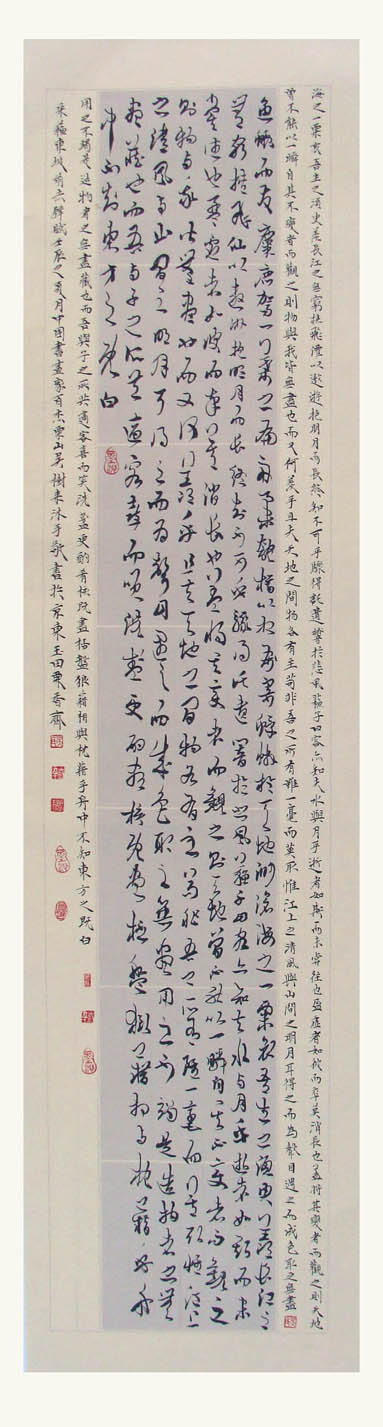 海之一粟哀吾生之須臾羨長江之無窮挾飛僊以遨遊抱明月而長終知不可乎驟得託遺響於悲風蘇子曰客亦知夫水與月乎逝者如斯而未嘗往也盈虛者如彼而卒莫消長也蓋將其變者而觀之則天地
曾不能以一瞬自其不變者而觀之則物與我皆無盡也而又何羨乎且夫天地之間物各有主苟非吾之所有雖一毫而莫取惟江上之清風與山間之明月耳得之而為聲目遇之而成色取之無盡
魚蝦而友麋鹿駕一葉之扁舟舉匏樽以相屬寄蜉蝣於天地渺滄海之一粟哀吾生之須臾羨長江之
無窮挾飛仙以遨遊抱明月而長終知不可乎驟得託遺響於悲風蘇子曰客亦知夫水與月乎逝者如斯而未
嘗往也盈虛者如彼而卒莫消長也蓋將其變者而觀之則天地曾不能以一瞬自其不變者而觀之
則物與我皆無盡也而又何羨乎且夫天地之間物各有主苟非吾之所有雖一毫而莫取惟江上
之清風與山間之明月耳得之而為聲目遇之而成色取之無盡用之不竭是造物者之無
盡藏也而吾與子之所共適客喜而笑洗盞更酌肴核既盡杯盤狼藉相與枕藉乎舟
中不知東方之既白
用之不竭是造物者之無盡藏也而吾與子之所共適客喜而笑洗盞更酌肴核既盡杯盤狼藉相與枕藉乎舟中不知東方之既白
蘇東坡前赤壁賦壬辰之夏月中國書畫家百杰栗山吳樹來沐手敬書於京東玉田栗香齋